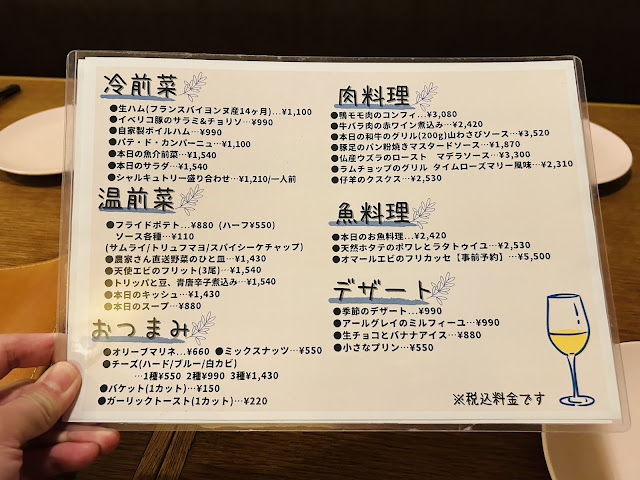 冷前菜
●生ハム(フランスバイヨンヌ産14ヶ月)...¥1,100
●イベリコ豚のサラミ&チョリソ...¥990
●自家製ボイルハム...¥990
●パテ・ド・カンパーニュ...¥1,100
●本日の魚介前菜...¥1,540
●本日のサラダ...¥1,540
●シャルキュトリー盛り合わせ...¥1,210/一人前
温前菜
●フライドポテト...¥880 (ハーフ¥550)
ソース各種...¥110
(サムライ/トリュフマヨ/スパイシーケチャップ)
●農家さん直送野菜のひと皿...¥1,430
●天使エビのフリット(3尾)...¥1,540
●トリッパと豆、青唐辛子煮込み...¥1,540
●本日のキッシュ...¥1,430
●本日のスープ...¥880
おつまみ
●オリーブマリネ...¥660 ●ミックスナッツ...¥550
●チーズ(ハード/ブルー/白カビ)
...1種¥550 2種¥990 3種¥1,430
●バケット(1カット)...¥150
●ガーリックトースト(1カット)...¥220
肉料理
●鴨モモ肉のコンフィ...¥3,080
●牛バラ肉の赤ワイン煮込み...¥2,420
●本日の和牛のグリル(200g)山わさびソース...¥3,520
●豚足のパン粉焼きマスタードソース...¥1,870
●仏産ウズラのロースト マデラソース...¥3,300
●ラムチョップのグリル タイムローズマリー風味...¥2,310
●仔羊のクスクス...¥2,530
魚料理
●本日のお魚料理...¥2,420
●天然ホタテのポワレとラタトゥイユ...¥2,530
●オマールエビのフリカッセ【事前予約】...¥5,500
デザート
●季節のデザート...¥990
●アールグレイのミルフィーユ...¥990
●生チョコとバナナアイス...¥880
●小さなプリン...¥550
※税込料金です